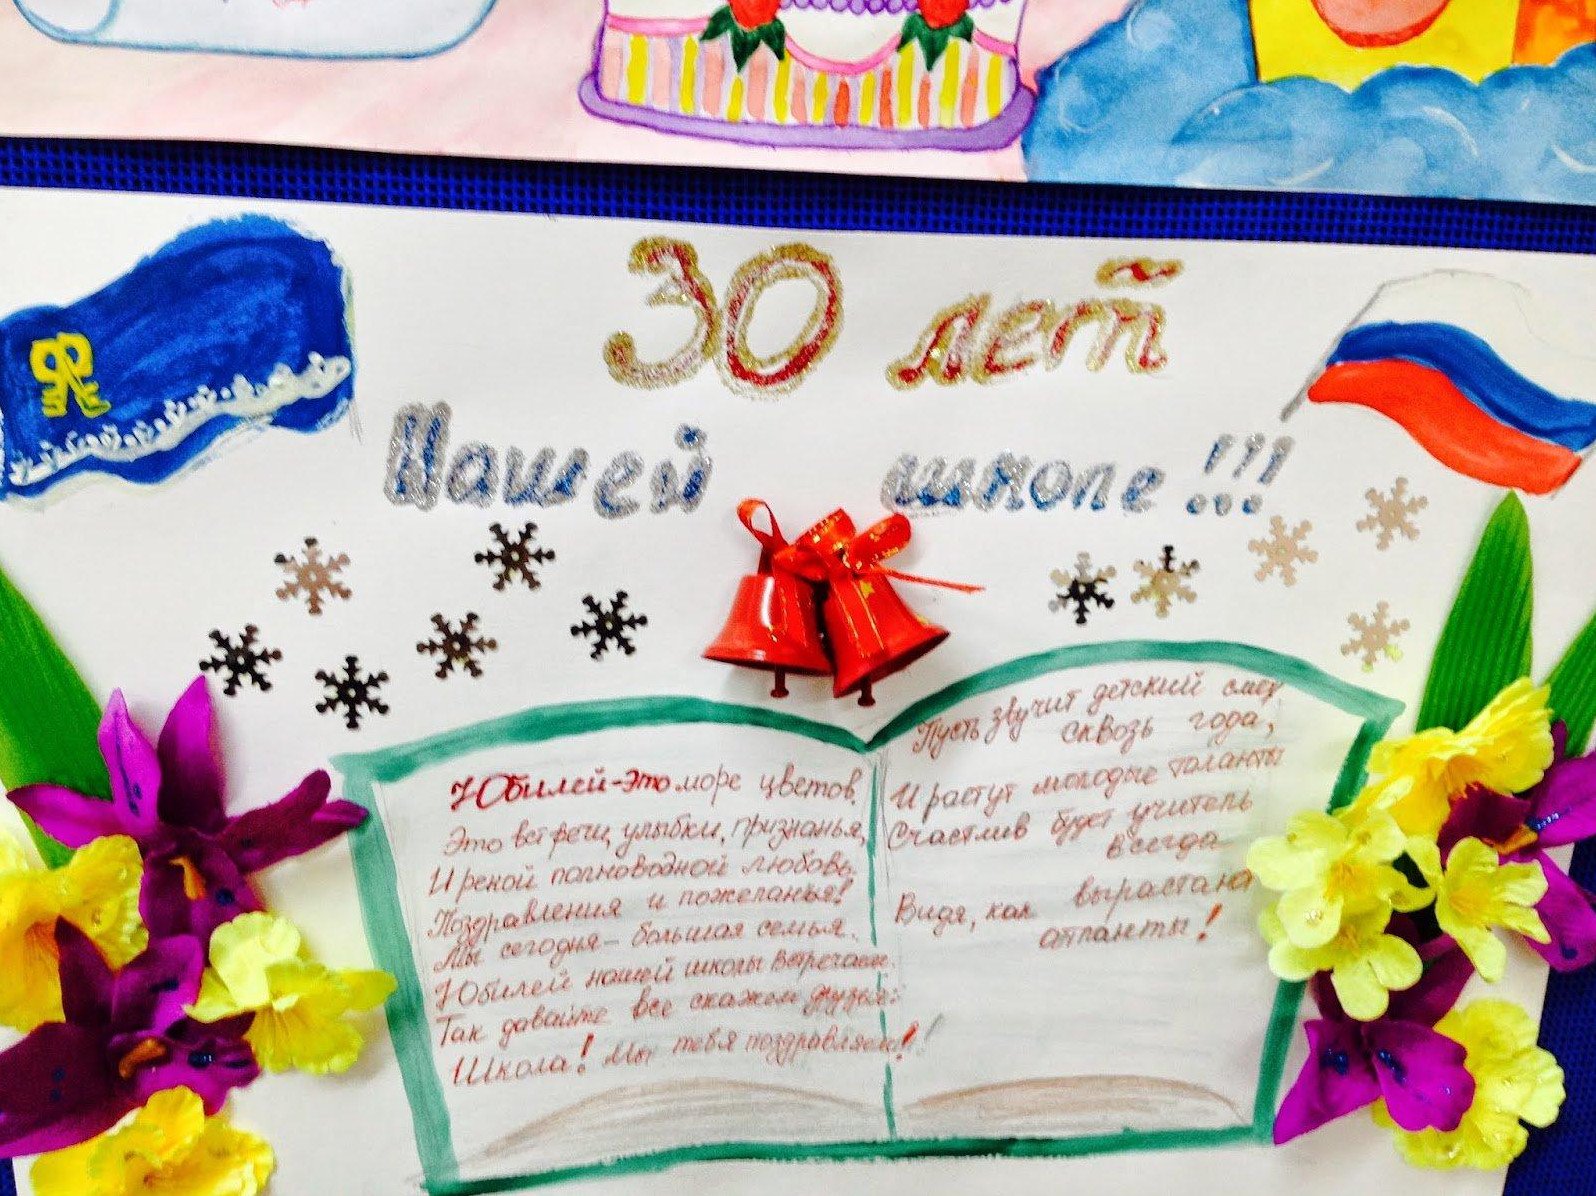 30 лет
Нашей школе!!!
Юбилей-это море цветов.
Это встречи, улыбки, признанья,
И рекой полноводной любовь.
Поздравления и пожеланья!
Мы сегодня- большая семья.
Юбилей нашей школы встречаем.
Так давайте все скажем друзья:
Школа! Мы тебя поздравляем!!
Пусть звучит детский смех
сквозь года,
И растут молодые таланты
Счастлив будет учитель
всегда
Видя, как вырастают
атланты!